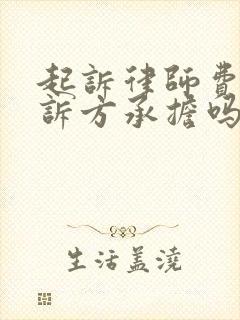 起訴律師費
訴方承擔吗
生活盖澆